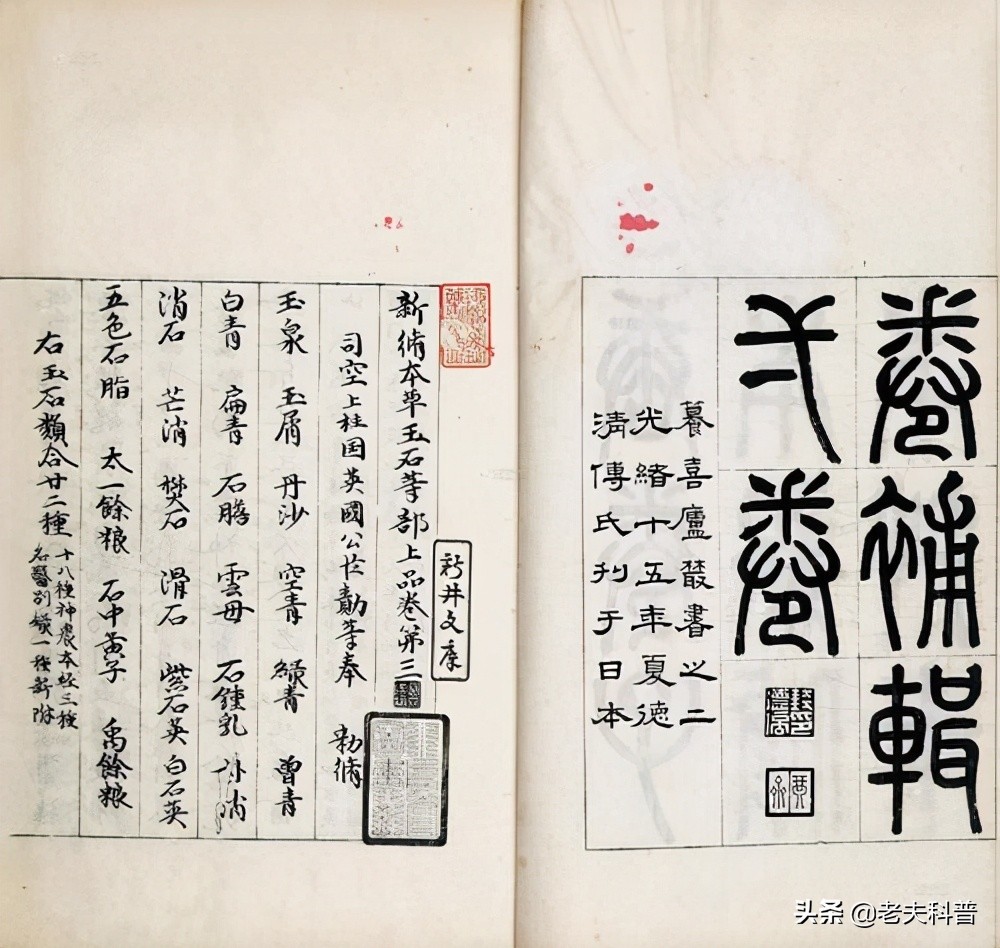 卷補輯
弌卷
籑喜廬叢書之二
光緒十五年夏德
清傅氏刊于日本
新井文庫
新脩本草玉石等部上品卷第三
司空上柱国英國公臣勣等奉 勅脩
玉泉 玉屑 丹沙 空青 緑青 曾青
白青 扁青 石膽 雲母 石鍾乳 朴消
消石 芒消 樊石 滑石 紫石英 白石英
五色石脂 太一餘粮 石中黄子 禹餘粮
右玉石類合廿二種 十八種神農本經三種
名醫別録一種新附
头条 @老夫科普